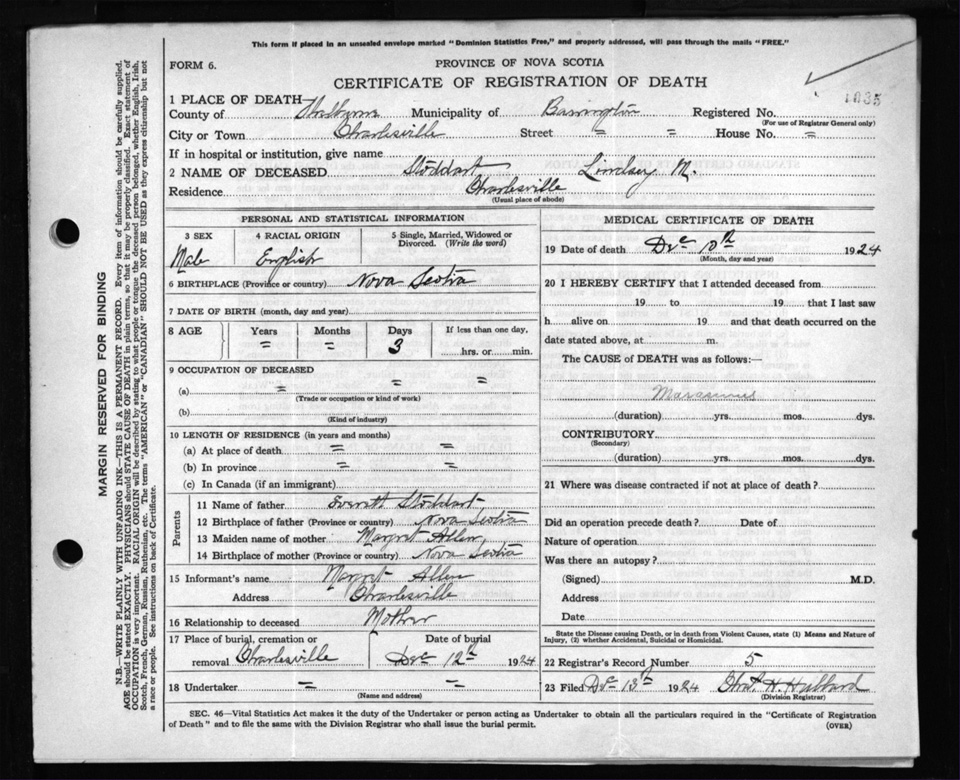 This form if placed in an unsealed envelope marked "Dominion Statistics Free," and properly addressed, will pass through the mails "FREE."
FORM 6.
PROVINCE OF NOVA SCOTIA
CERTIFICATE OF REGISTRATION OF DEATH
1835
1 PLACE OF DEATH
County of Shelburne Municipality of Barrington Registered No.
(For use of Registrar General only)
City or Town Charlesville Street = = House No. =
If in hospital or institution, give name
2 NAME OF DECEASED Stoddart Lindsey M.
Residence Charlesville
(Usual place of abode)
PERSONAL AND STATISTICAL INFORMATION
3 SEX 4 RACIAL ORIGIN 5 Single, Married, Widowed or Divorced. (Write the word)
Male English
6 BIRTHPLACE (Province or country) Nova Scotia
7 DATE OF BIRTH (month, day and year)
8 AGE Years Months Days If less than one day,
= = 3 hrs. or min.
9 OCCUPATION OF DECEASED
(a) = = =
(Trade or occupation or kind of work)
(b)
(Kind of industry)
10 LENGTH OF RESIDENCE (in years and months)
(a) At place of death = =
(b) In province = =
(c) In Canada (if an immigrant)
Parents
11 Name of father Everett Stoddart
12 Birthplace of father (Province or country) Nova Scotia
13 Maiden name of mother Margret Allen
14 Birthplace of mother (Province or country) Nova Scotia
15 Informant's name Margret Allen
Address Charlesville
16 Relationship to deceased Mother
17 Place of burial, cremation or Date of burial
removal Charlesville Dec 12th 1924
18 Undertaker = =
(Name and address)
MEDICAL CERTIFICATE OF DEATH
19 Date of death Dec 10th 1924
(Month, day and year)
20 I HEREBY CERTIFY that I attended deceased from
19 to 19 that I last saw
h alive on 19 and that death occurred on the
date stated above, at m.
The CAUSE of DEATH was as follows:—
Marasmus
(duration) yrs. mos. dys.
CONTRIBUTORY
(Secondary)
(duration) yrs. mos. dys.
21 Where was disease contracted if not at place of death?
Did an operation precede death? Date of
Nature of operation
Was there an autopsy?
(Signed) M.D.
Address
Date
State the Disease causing Death, or in death from Violent Causes, state (1) Means and Nature of
Injury, (2) whether Accidental, Suicidal or Homicidal.
22 Registrar's Record Number 5
23 Filed Dec 13th 1924 H. Hubbard
(Division Registrar)
SEC. 46—Vital Statistics Act makes it the duty of the Undertaker or person acting as Undertaker to obtain all the particulars required in the "Certificate of Registration
of Death" and to file the same with the Division Registrar who shall issue the burial permit.
(OVER)
MARGIN RESERVED FOR BINDING
N.B.—WRITE PLAINLY WITH UNFADING INK—THIS IS A PERMANENT RECORD. Every item of information should be carefully supplied.
AGE should be stated EXACTLY. PHYSICIANS should STATE CAUSE OF DEATH in plain terms, so that it may be properly classified. Exact statement of
OCCUPATION is very important. RACIAL ORIGIN will be described by stating to what people or tongue the deceased person belonged, whether English, Irish,
Scotch, French, German, Russian, Ruthenian, etc. The terms "AMERICAN" or "CANADIAN" SHOULD NOT BE USED as they express citizenship but not
a race or people. See instructions on back of Certificate.